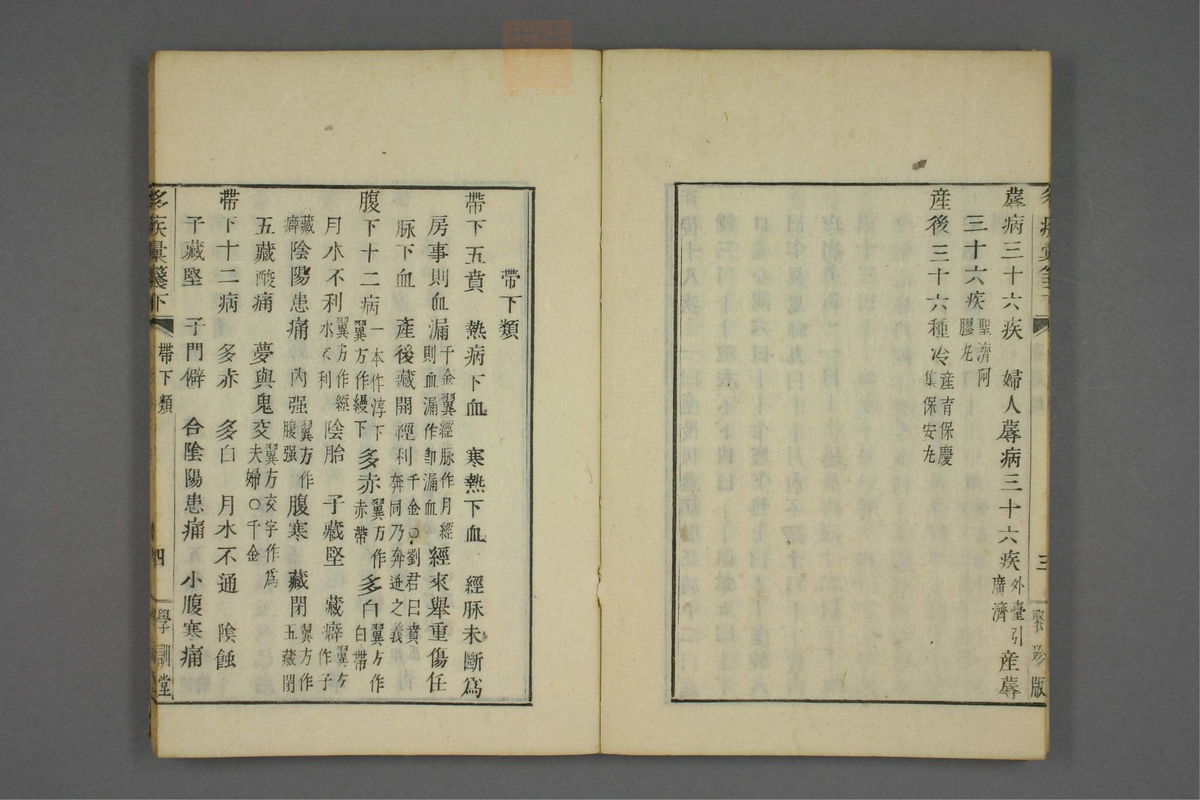 蓐病三十六疾　婦人蓐病三十六疾外臺引廣濟產蓐
三十六疾聖濟阿膠丸
產後三十六種冷產育保慶集保安丸
三
聚珍版
帶下類
帶下五賁　熱病下血　寒熱下血　經脉未斷爲
房事則血漏千金翼經脉作月經則血漏作卽漏血經來舉重傷任
脉下血　產後藏開經利千金○劉君曰賁奔同乃奔逬之義
腹下十二病一本作淳下翼方作縵下多赤翼方作赤帶多白翼方作白帶
月水不利翼方作經水不利陰胎　子藏堅　藏癖翼方作子藏癖
陰陽患痛　內强翼方作腹强腹寒　藏閉翼方作五藏閉
五藏酸痛　夢與鬼交翼方交字作爲夫婦○千金
帶下十二病　多赤　多白　月水不通　陰蝕
子藏堅　子門僻　合陰陽患痛　小腹寒痛
疾彙箋下
帶下類
四
學訓堂